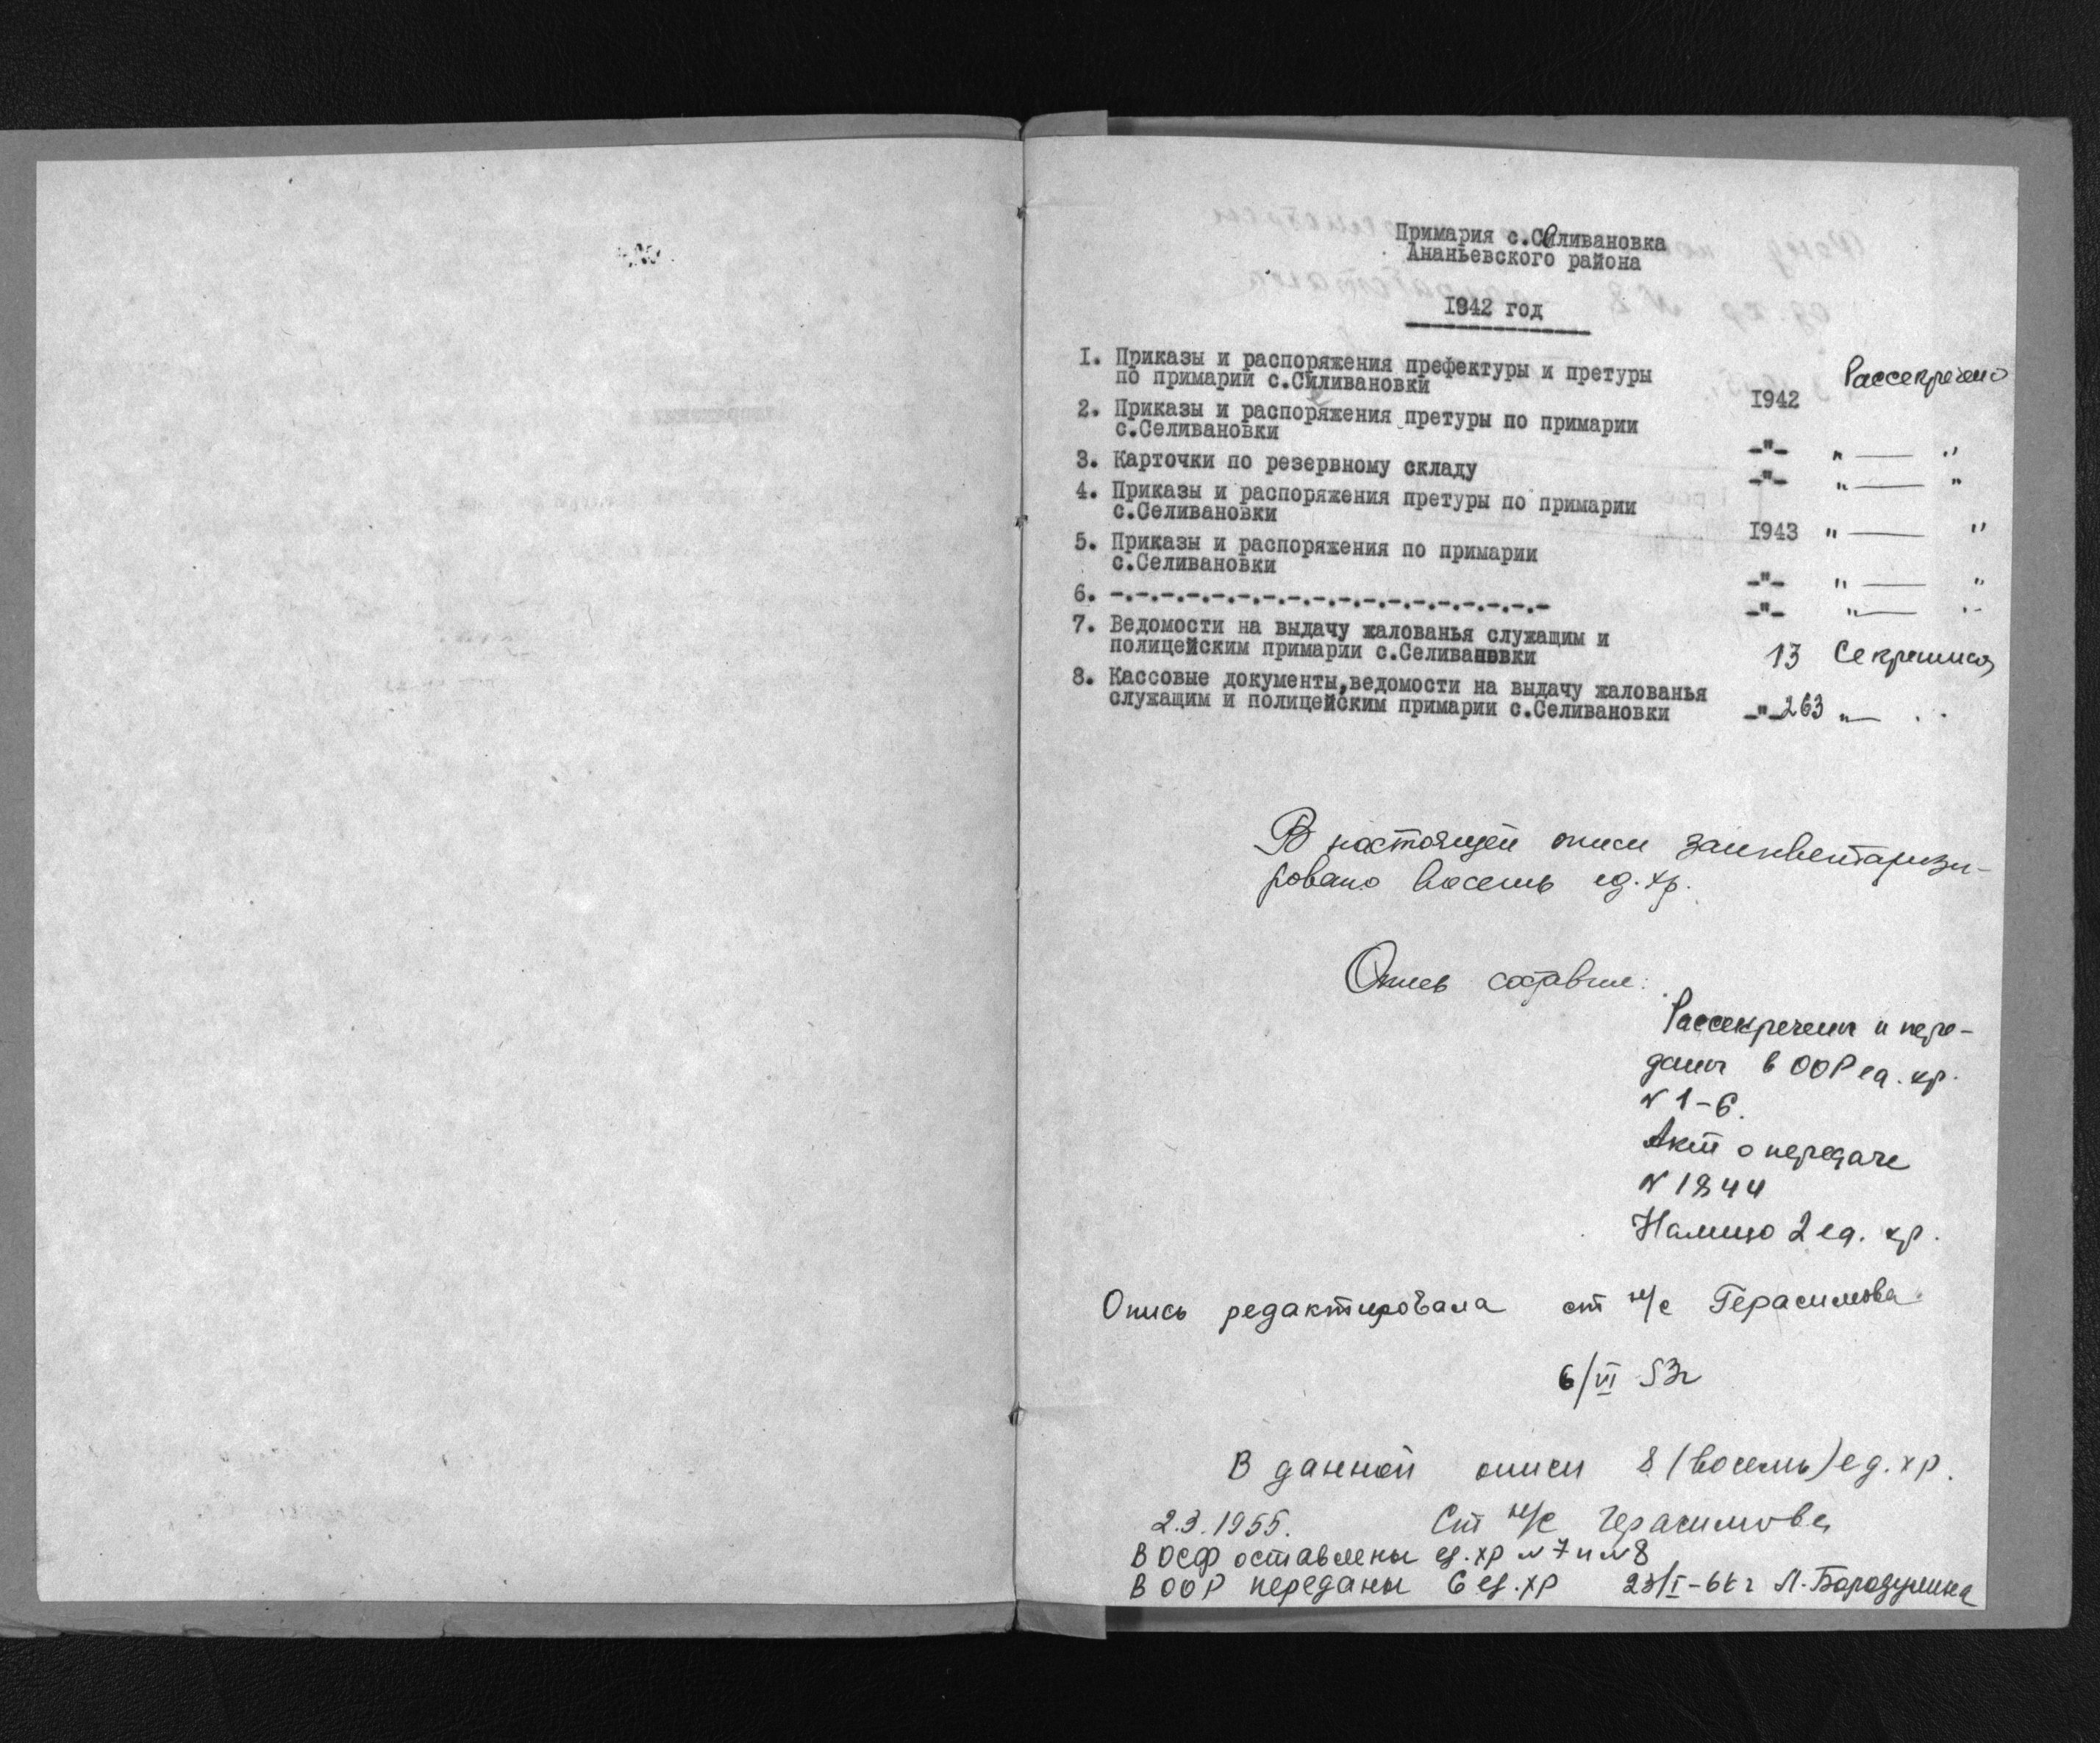 Примария с.Селивановка
Ананьевского района
1942 год
1. Приказы и распоряжения префектуры и претуры
по примарии с.Селивановки 1942 Рассекречено
2. Приказы и распоряжения претуры по примарии
с.Селивановки -"- " — "
3. Карточки по резервному складу -"- " — "
4. Приказы и распоряжения претуры по примарии
с.Селивановки 1943 " — "
5. Приказы и распоряжения по примарии
с.Селивановки -"- " — "
6. -.-.-.-.-.-.-.-.-.-.-.-.-.-.-.-.-.- -"- " — "
7. Ведомости на выдачу жалованья служащим и
полицейским примарии с.Селивановки 13
8. Кассовые документы,ведомости на выдачу жалованья
служащим и полицейским примарии с.Селивановки -"- 263 " —
В настоящей описи заинвентаризи-
ровано восемь ед. хр.
Опись составил:
Рассекречены и пере-
даны в ООР ед. хр.
№ 1-6.
Акт о передаче
№ 1844
Налицо 2 ед. хр.
Опись редактировала ст н/с Герасимова
6/VI 53г
В данной описи 8 (восемь) ед. хр.
2.3.1955. Ст н/с Герасимова
В ОСФ оставлены ед. хр № 7 и № 8
В ООР переданы 6 ед. хр Л. Бородулина